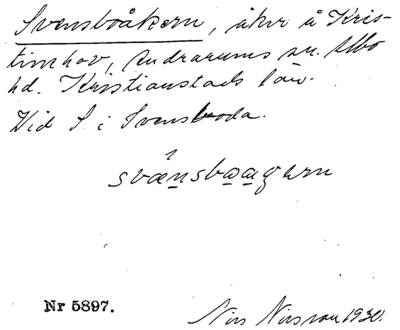 Svensboåkern, åker å Kris-
tinehov, Andrarums sn. Albo
hd. Kristianstads län.
Vid S. i Svensboda.
Nr 5897.
Nils Nilsson 1930.